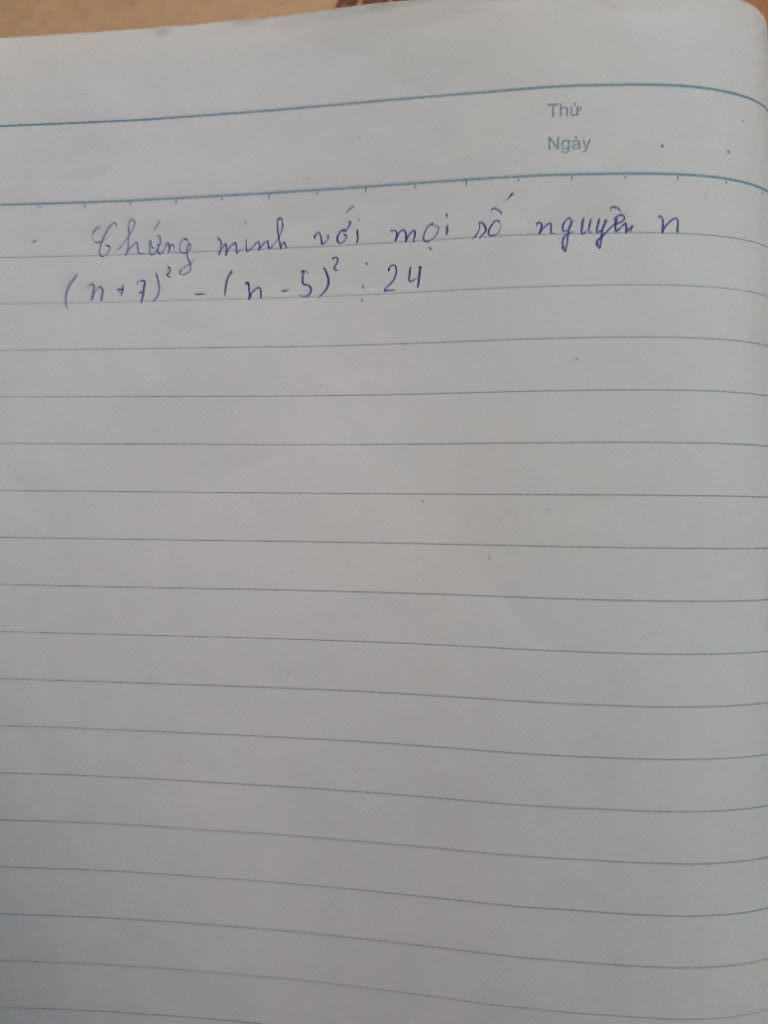 Thứ
Ngày
Chứng minh với mọi số nguyên n
(n + 7)² - (n - 5)² ⋮ 24